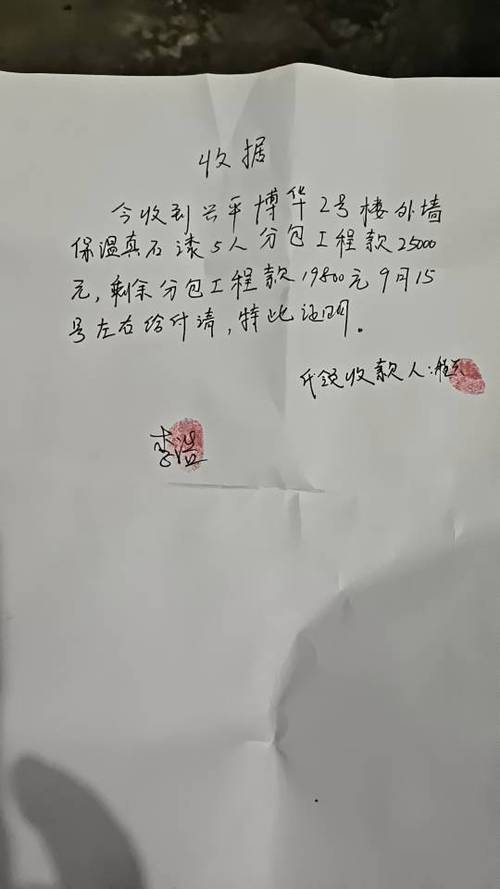 收据
今收到兴平博华2号楼外墙
保温真石漆5人分包工程款25000
元，剩余分包工程款19800元9月15
号左右给付请，特此证明。
代领收款人：
李溢